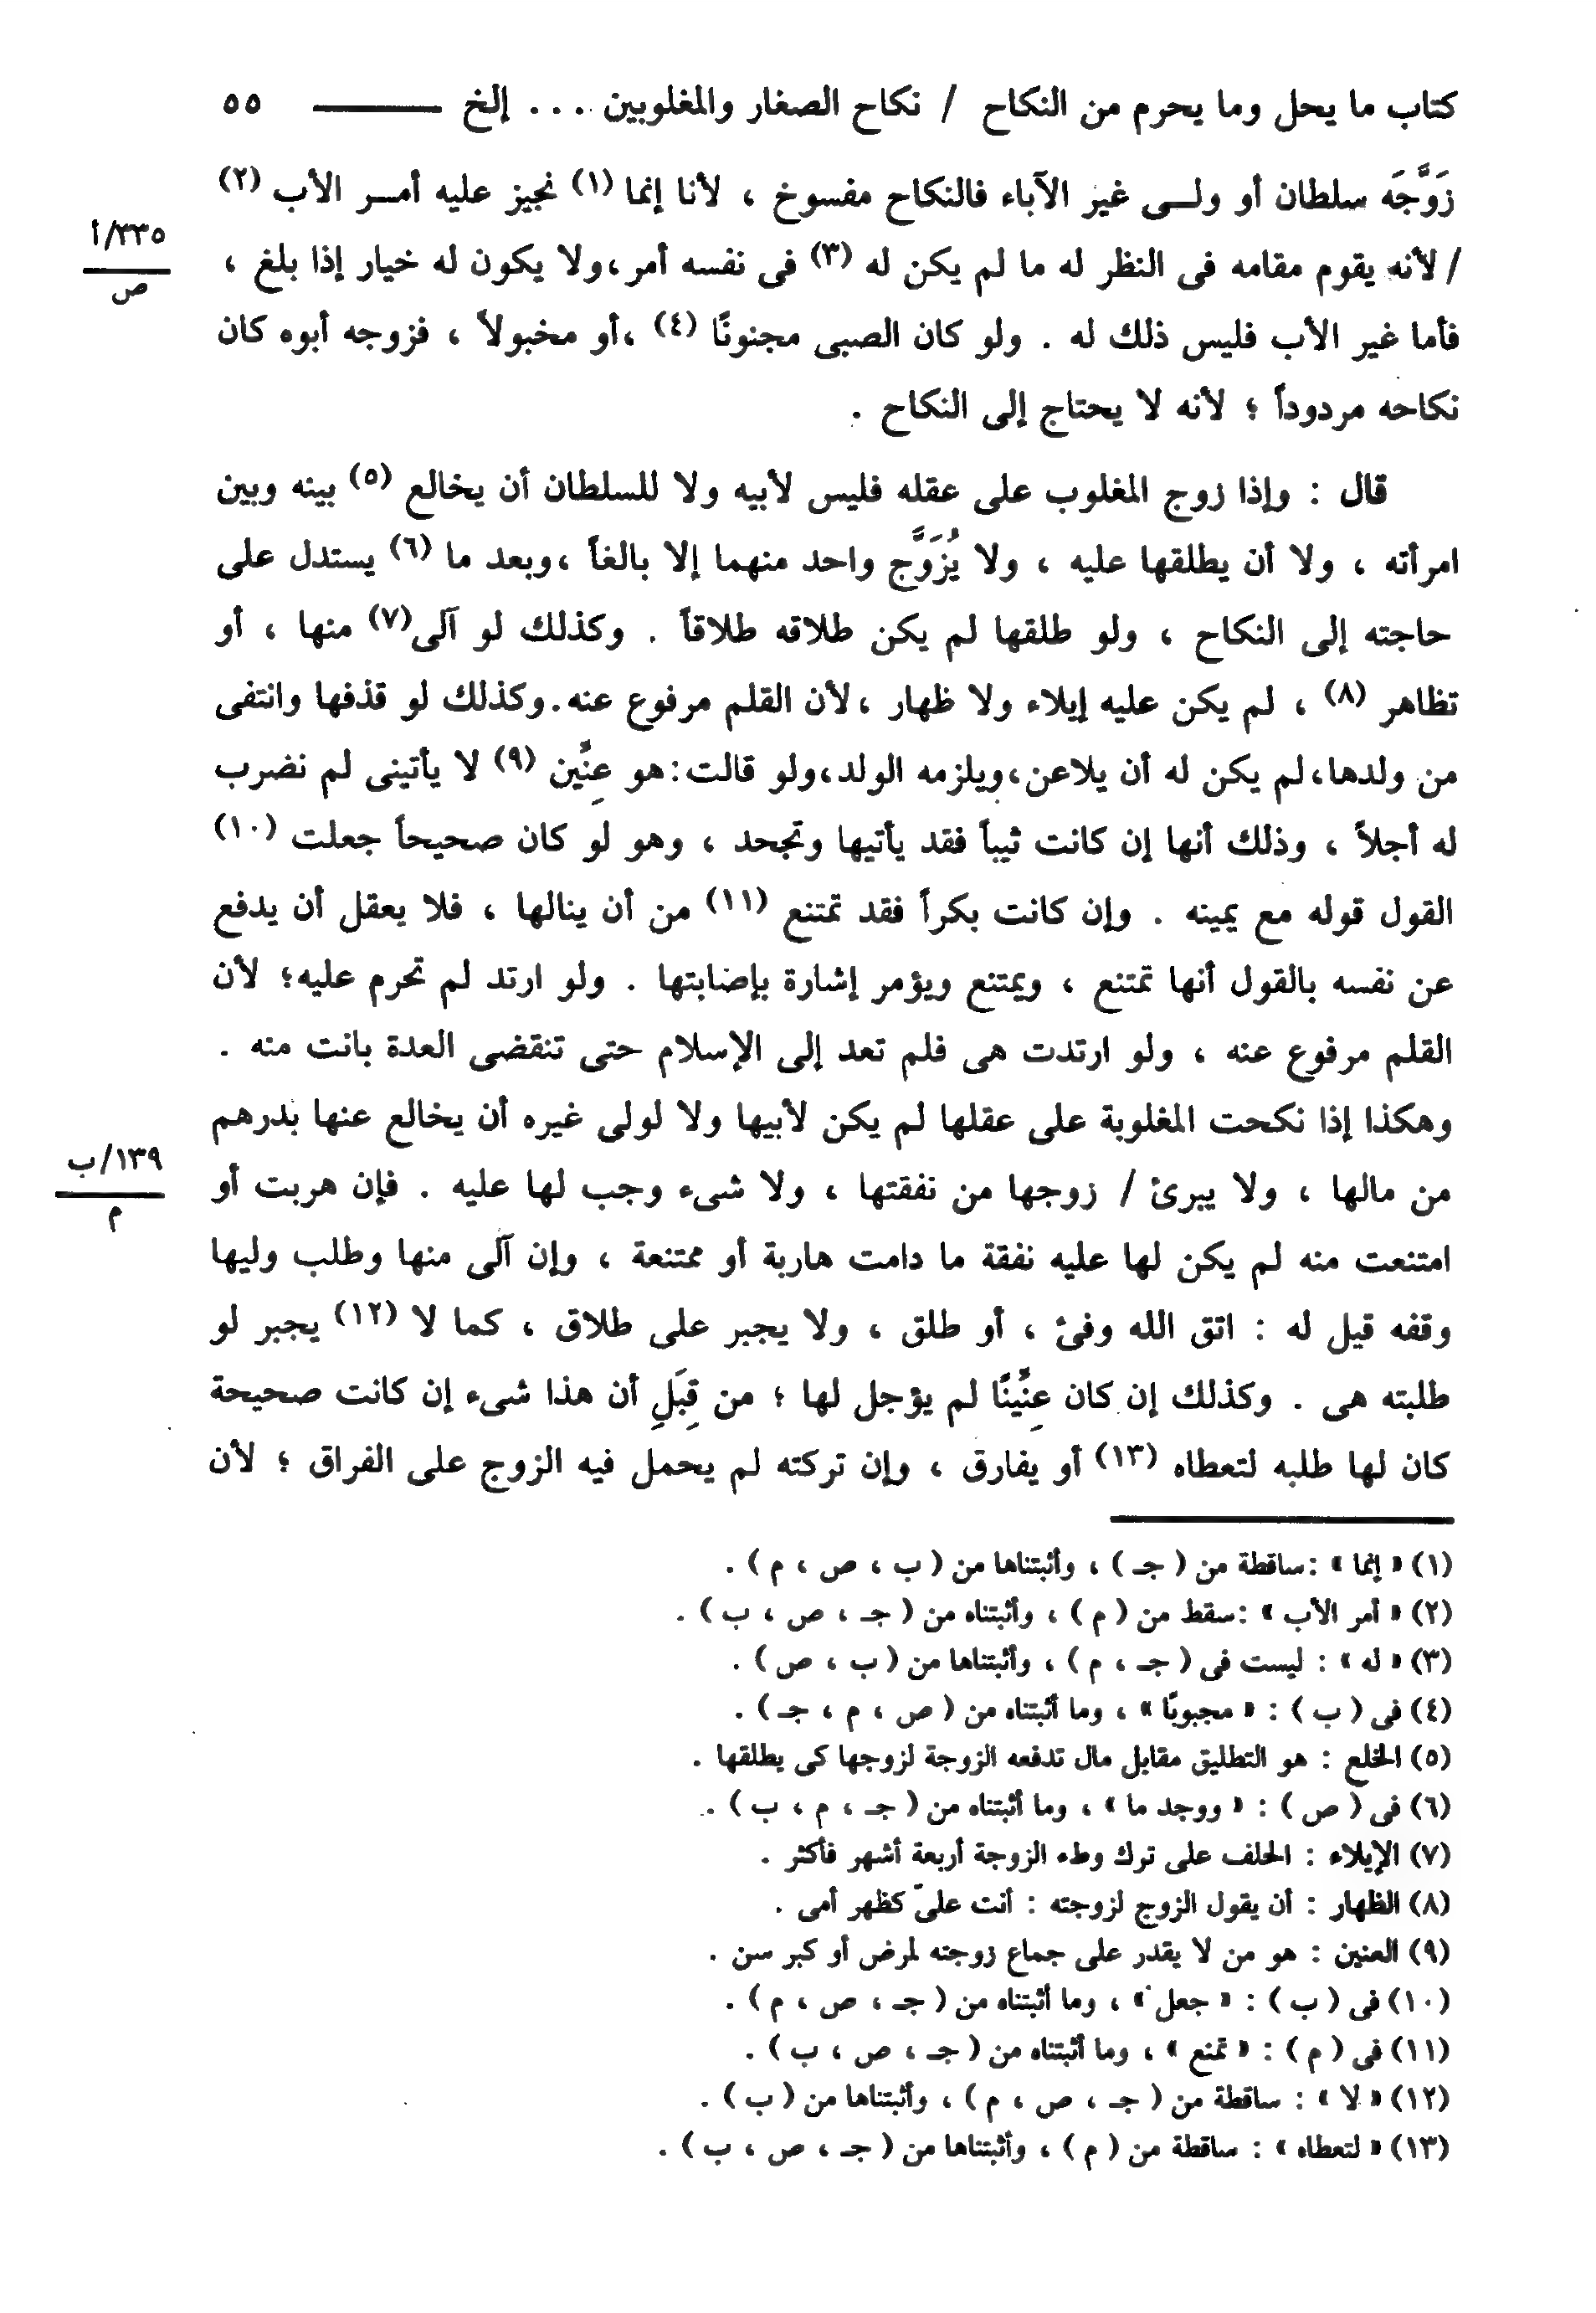 كتاب ما يحل وما يحرم من النكاح / نكاح الصغار والمغلوبين . . . إلخ ـــــــــ ٥٥
زَوَّجَه سلطان أو ولـــى غير الآباء فالنكاح مفسوخ ، لأنا إنما (١) نجيز عليه أمـــر الأب (٢)
٣٣٥/أ
ص
/ لأنه يقوم مقامه فى النظر له ما لم يكن له (٣) فى نفسه أمر ،ولا يكون له خيار إذا بلغ ،
فأما غير الأب فليس ذلك له . ولو كان الصبى مجنونًا (٤) ،أو مخبولاً ، فزوجه أبوه كان
نكاحه مردوداً ؛ لأنه لا يحتاج إلى النكاح .
قال : وإذا زوج المغلوب على عقله فليس لأبيه ولا للسلطان أن يخالع (٥) بينه وبين
امرأته ، ولا أن يطلقها عليه ، ولا يُزَوَّج واحد منهما إلا بالغاً ،وبعد ما (٦) يستدل على
حاجته إلى النكاح ، ولو طلقها لم يكن طلاقه طلاقاً . وكذلك لو آلى(٧) منها ، أو
تظاهر (٨) ، لم يكن عليه إيلاء ولا ظهار ،لأن القلم مرفوع عنه.وكذلك لو قذفها وانتفى
من ولدها،لم يكن له أن يلاعن،ويلزمه الولد،ولو قالت:هو عِنِّين (٩) لا يأتينى لم نضرب
له أجلاً ، وذلك أنها إن كانت ثيباً فقد يأتيها وتجحد ، وهو لو كان صحيحاً جعلت (١٠)
القول قوله مع يمينه . وإن كانت بكراً فقد تمتنع (١١) من أن ينالها ، فلا يعقل أن يدفع
عن نفسه بالقول أنها تمتنع ، ويمتنع ويؤمر إشارة بإضابتها . ولو ارتد لم تحرم عليه؛ لأن
القلم مرفوع عنه ، ولو ارتدت هى فلم تعد إلى الإسلام حتى تنقضى العدة بانت منه .
وهكذا إذا نكحت المغلوبة على عقلها لم يكن لأبيها ولا لولى غيره أن يخالع عنها بدرهم
١٣٩/ب
م
من مالها ، ولا يبرئ / زوجها من نفقتها ، ولا شىء وجب لها عليه . فإن هربت أو
امتنعت منه لم يكن لها عليه نفقة ما دامت هاربة أو ممتنعة ، وإن آلى منها وطلب وليها
وقفه قيل له : اتق الله وفئ ، أو طلق ، ولا يجبر على طلاق ، كما لا (١٢) يجبر لو
طلبته هى . وكذلك إن كان عِنِّينًا لم يؤجل لها ؛ من قِبَلِ أن هذا شىء إن كانت صحيحة
كان لها طلبه لتعطاه (١٣) أو يفارق ، وإن تركته لم يحمل فيه الزوج على الفراق ؛ لأن
(١) « إنما » :ساقطة من ( جـ ) ، وأثبتناها من ( ب ، ص ، م ) .
(٢) « أمر الأب » :سقط من ( م ) ، وأثبتناه من ( جـ ، ص ، ب ) .
(٣) « له » : ليست فى ( جـ ، م ) ، وأثبتناها من ( ب ، ص ) .
(٤) فى ( ب ) : « مجبوبًا » ، وما أثبتناه من ( ص ، م ، جـ ) .
(٥) الخلع : هو التطليق مقابل مال تدفعه الزوجة لزوجها كى يطلقها .
(٦) فى ( ص ) : « ووجد ما » ، وما أثبتناه من ( جـ ، م ، ب ) .
(٧) الإيلاء : الحلف على ترك وطء الزوجة أربعة أشهر فأكثر .
(٨) الظهار : أن يقول الزوج لزوجته : أنت علىّ كظهر أمى .
(٩) العنين : هو من لا يقدر على جماع زوجته لمرض أو كبر سن .
(١٠) فى ( ب ) : « جعل » ، وما أثبتناه من ( جـ ، ص ، م ) .
(١١) فى ( م ) : « تمنع » ، وما أثبتناه من ( جـ ، ص ، ب ) .
(١٢) « لا » : ساقطة من ( جـ ، ص ، م ) ، وأثبتناها من ( ب ) .
(١٣) « لتعطاه » : ساقطة من ( م ) ، وأثبتناها من ( جـ ، ص ، ب ) .